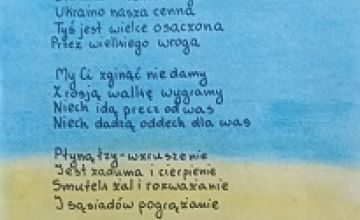 Ukraino nasza cenna
Tyś jest wielce osaczona
Przez wielkiego wroga
My Ci zginąć nie damy
Z rosją walkę wygramy
Niech idą precz od was
Niech dadzą oddech dla was
Płyną łzy - wzruszenie
Jest zaduma i cierpienie
Smutek żal i rozważanie
I sąsiadów pogrążanie